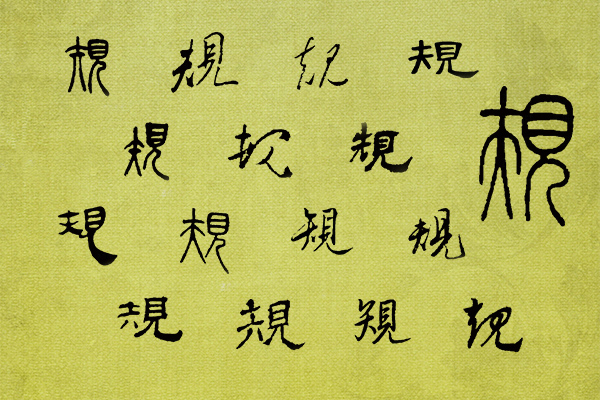 規規規規
規規規
規
規規規規
規規規規